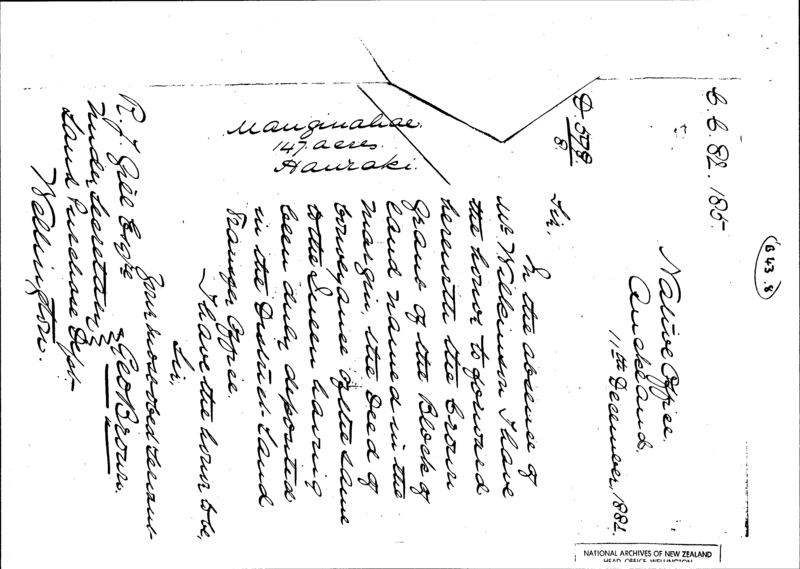 C.C. 82. 185.
(B 43.8)
Native Office.
Auckland.
11th December, 1882.
D. 508.
8
Manginahae.
147 acres.
Hauraki.
Sir,
In the absence of
Mr Wilkinson I have
the honor to forward
herewith the Crown
Grant of the Block of
land named in the
margin, the Deed of
Conveyance of the same
to the Queen having
been duly deposited
in the District Land
Transfer Office.
I have the honor to be,
Sir,
Your most obed servant
Geo Brown.
R. J. Gill Esqre
Under Secretary
Land Purchase Dept.
Wellington.
NATIONAL ARCHIVES OF NEW ZEALAND
HEAD OFFICE WELLINGTON